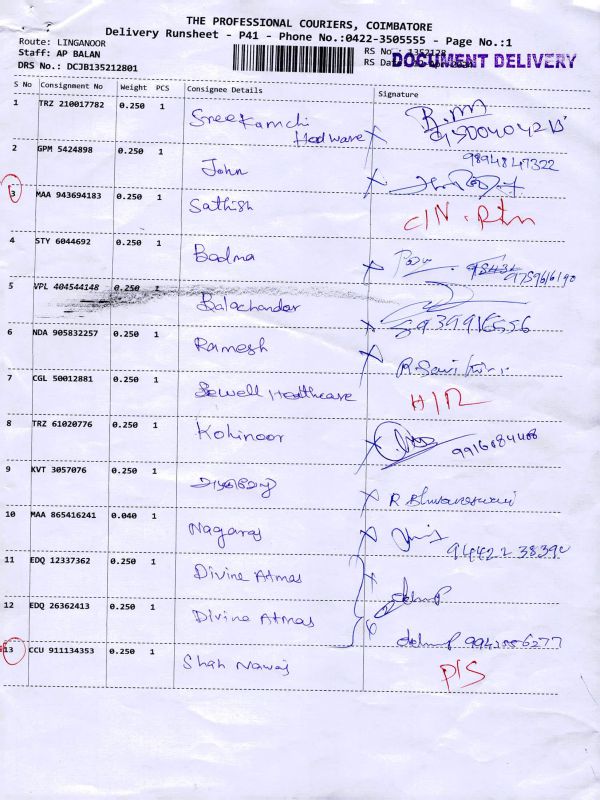 THE PROFESSIONAL COURIERS, COIMBATORE
Delivery Runsheet - P41 - Phone No.:0422-3505555 - Page No.:1
Route: LINGANOOR
Staff: AP BALAN
DRS No.: DCJB135212801
RS No.: 1352128
RS Da
DOCUMENT DELIVERY
S No Consignment No Weight PCS Consignee Details Signature
1 TRZ 210017782 0.250 1 Sree Kamchi Hardware
2 GPM 5424898 0.250 1 John 9894847322
3 MAA 943694183 0.250 1 Sathish C/N. Rtn
4 STY 6044692 0.250 1 Badma 9789616190
5 VPL 404544148 0.250 1 Balachander
6 NDA 905832257 0.250 1 Ramesh
7 CGL 50012881 0.250 1 Sewell Healthcare
8 TRZ 61020776 0.250 1 Kohinoor
9 KVT 3057076 0.250 1 R Bhuvaneswari
10 MAA 865416241 0.040 1 Nagaraj
11 EDQ 12337362 0.250 1 Divine Atmas
12 EDQ 26362413 0.250 1 Divine Atmas
13 CCU 911134353 0.250 1 Shah Nawaj P/S